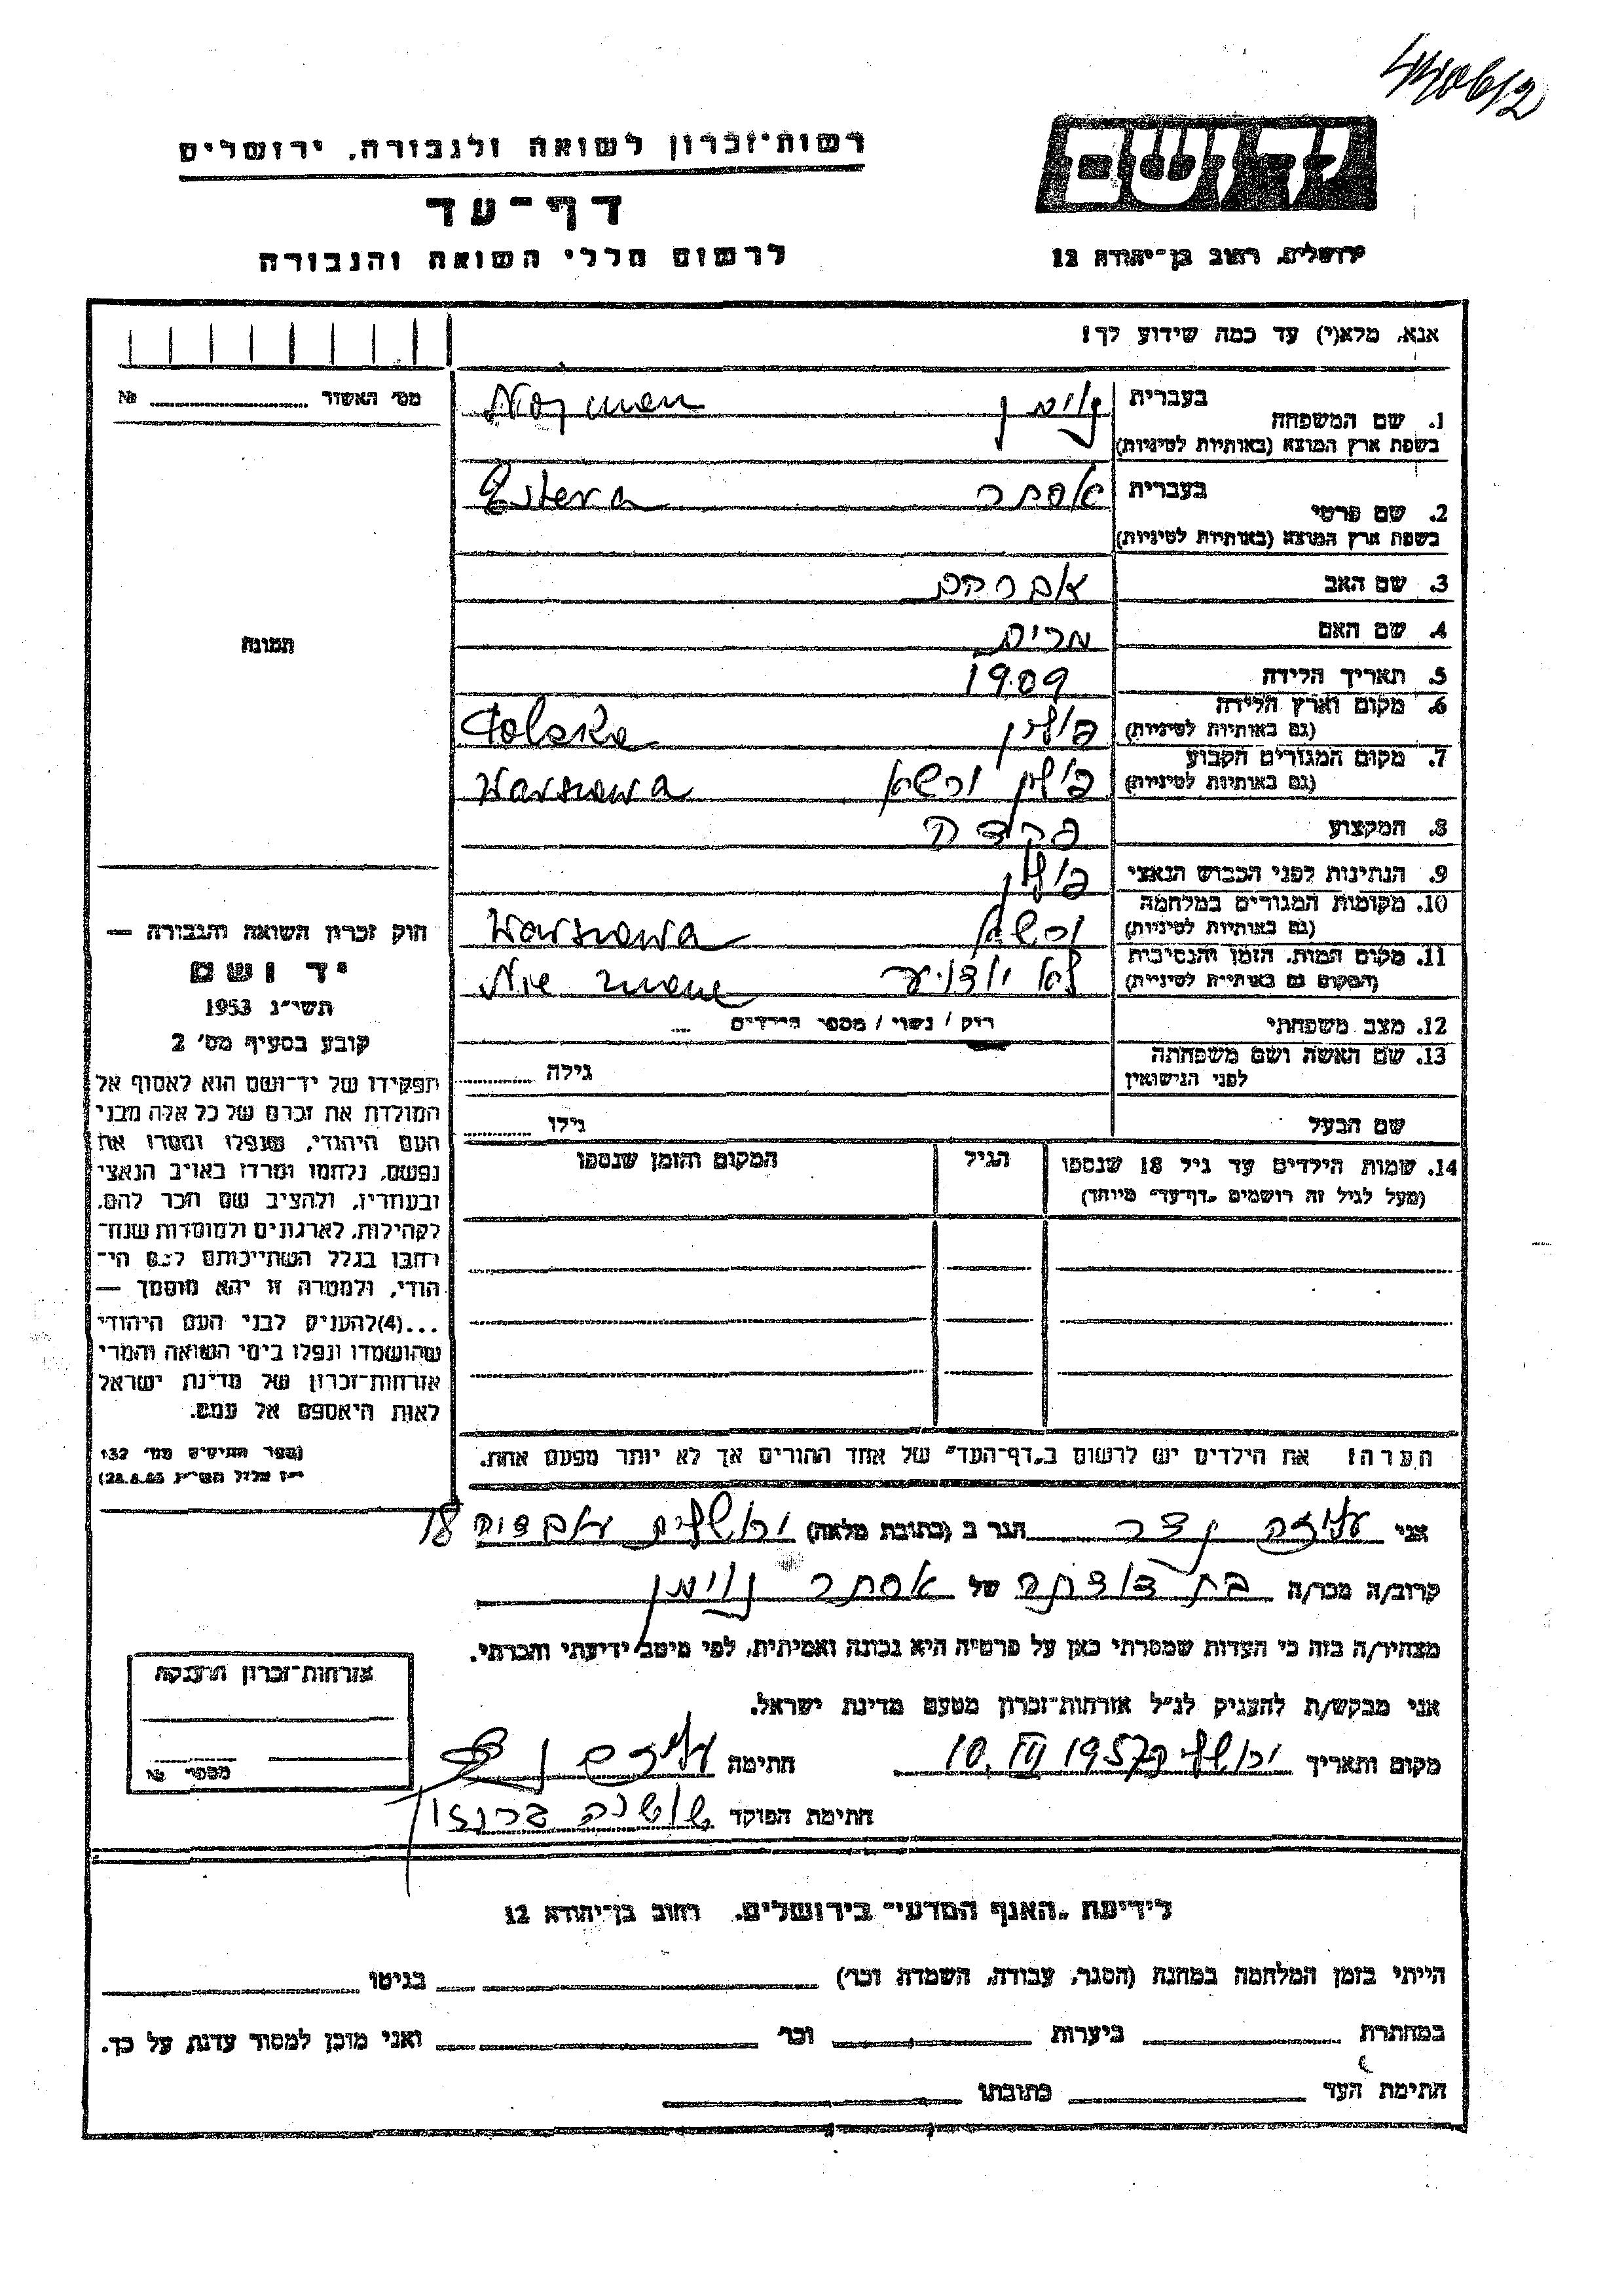 רשות־זכרון לשואה ולגבורה, ירושלים
דף־עד
לרשום חללי השואה והגבורה
יד ושם
ירושלים, רחוב בן־יהודה 12
אנא, מלא(י) עד כמה שידוע לך!
מס׳ האשור ........ №
תמונה
בעברית נוימן Nojman
1. שם המשפחה
בשפת ארץ המוצא (באותיות לטיניות)
בעברית אסתר Estera
2. שם פרטי
בשפת ארץ המוצא (באותיות לטיניות)
3. שם האב אברהם
4. שם האם מרים
5. תאריך הלידה 1909
6. מקום וארץ הלידה פולין Polska
(גם באותיות לטיניות)
7. מקום המגורים הקבוע פולין ורשא Warszawa
(גם באותיות לטיניות)
8. המקצוע פקידה
9. הנתינות לפני הכבוש הנאצי פולין
10. מקומות המגורים במלחמה ורשא Warszawa
(גם באותיות לטיניות)
11. מקום המות, הזמן והנסיבות לא ידוע Nie znane
(המקום גם באותיות לטיניות)
12. מצב משפחתי רוק / נשוי / מספר הילדים
13. שם האשה ושם משפחתה גילה
לפני הנישואין
שם הבעל גילו
14. שמות הילדים עד גיל 18 שנספו הגיל המקום והזמן שנספו
(מעל לגיל זה רושמים „דף־עד״ מיוחד)
הערה! את הילדים יש לרשום ב„דף־העד״ של אחד ההורים אך לא יותר מפעם אחת.
חוק זכרון השואה והגבורה —
יד ושם
תשי״ג 1953
קובע בסעיף מס׳ 2
תפקידו של יד־ושם הוא לאסוף אל
המולדת את זכרם של כל אלה מבני
העם היהודי, שנפלו ומסרו את
נפשם, נלחמו ומרדו באויב הנאצי
ובעוזריו, ולהציב שם וזכר להם,
לקהילות, לארגונים ולמוסדות שנח־
רבו בגלל השתייכותם לעם הי־
הודי, ולמטרה זו יהא מוסמך —
...(4)להעניק לבני העם היהודי
שהושמדו ונפלו בימי השואה והמרי
אזרחות־זכרון של מדינת ישראל
לאות היאספם אל עמם.
(ספר החוקים מס׳ 132
י״ז אלול תשי״ג 28.8.53)
אני עליזה נדר הגר ב (כתובת מלאה) ירושלים 18
קרוב/ה מכר/ה בת דודתה של אסתר נוימן
מצהיר/ה בזה כי העדות שמסרתי כאן על פרטיה היא נכונה ואמיתית, לפי מיטב ידיעתי והכרתי.
אני מבקש/ת להעניק לנ״ל אזרחות־זכרון מטעם מדינת ישראל.
מקום ותאריך 1957 חתימה
חתימת הפוקד שושנה
אזרחות־זכרון הוענקה
מספר №
לידיעת „האגף המדעי״ בירושלים, רחוב בן־יהודה 12
הייתי בזמן המלחמה במחנה (הסגר, עבודה, השמדה וכו׳) בגיטו
במחתרת ביערות וכו׳ ואני מוכן למסור עדות על כך.
חתימת העד כתובתו